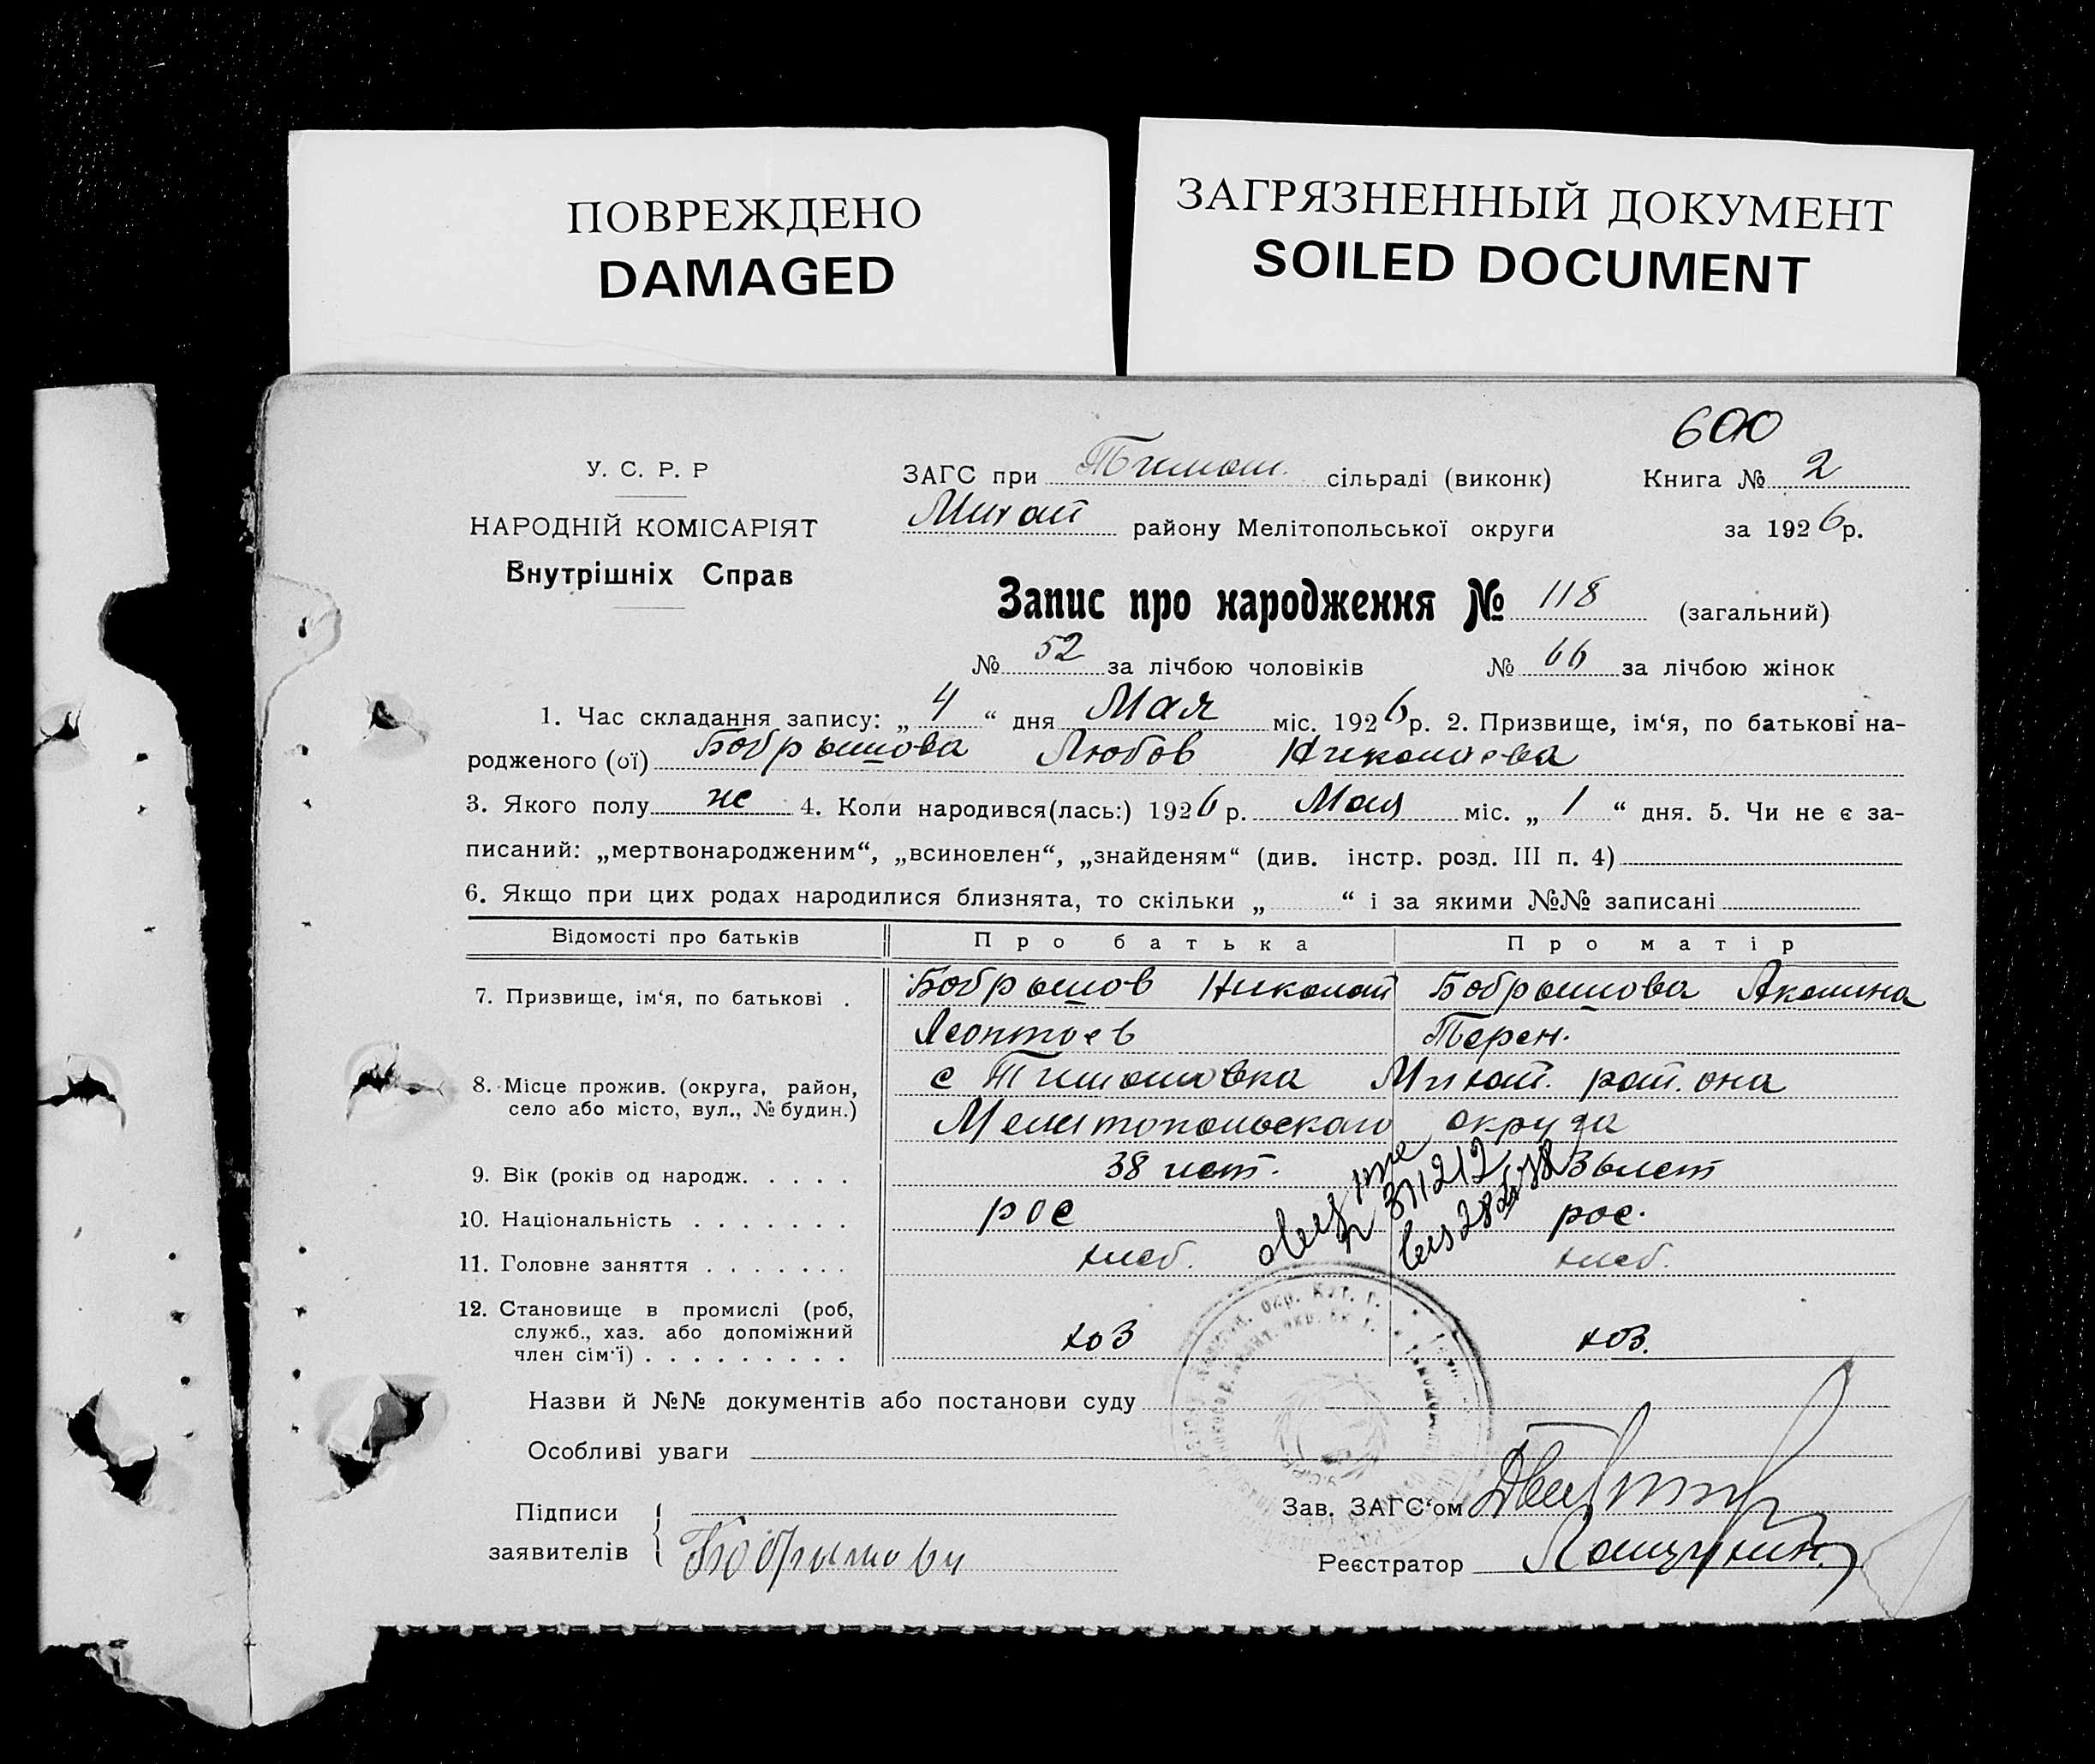 ПОВРЕЖДЕНО
DAMAGED
ЗАГРЯЗНЕННЫЙ ДОКУМЕНТ
SOILED DOCUMENT
600
У. С. Р. Р
НАРОДНІЙ КОМІСАРІЯТ
Внутрішніх Справ
ЗАГС при Тимош. сільраді (виконк) Книга № 2
Михай району Мелітопольської округи за 1926р.
Запис про народження № 118 (загальний)
№ 52 за лічбою чоловіків № 66 за лічбою жінок
1. Час складання запису: „ 4 “ дня Мая міс. 1926р. 2. Призвище, ім‘я, по батькові на-
родженого (ої) Бобрышова Любов Николаева
3. Якого полу же 4. Коли народився(лась:) 1926р. Мая міс. „ 1 “ дня. 5. Чи не є за-
писаний: „мертвонародженим“, „всиновлен“, „знайденям“ (див. інстр. розд. III п. 4)
6. Якщо при цих родах народилися близнята, то скільки „ “ і за якими №№ записані
Відомості про батьків Про батька Про матір
7. Призвище, ім‘я, по батькові . Бобрышов Николай Бобрышова Акилина
Леонтьев Терен.
8. Місце прожив. (округа, район, с Тимошовка Михай. рай.она
село або місто, вул., № будин.) Мелитопольскаго округа
9. Вік (років од народж. . . . . 38 лет. 36 лет
10. Національність . . . . . . . рос рос.
11. Головне заняття . . . . . . . хлеб. хлеб.
12. Становище в промислі (роб,
служб., хаз. або допоміжний хоз хоз.
член сім‘ї) . . . . . . . . .
Назви й №№ документів або постанови суду
Особливі уваги
Підписи
заявителів Бобрышов
Зав. ЗАГС‘ом
Реєстратор